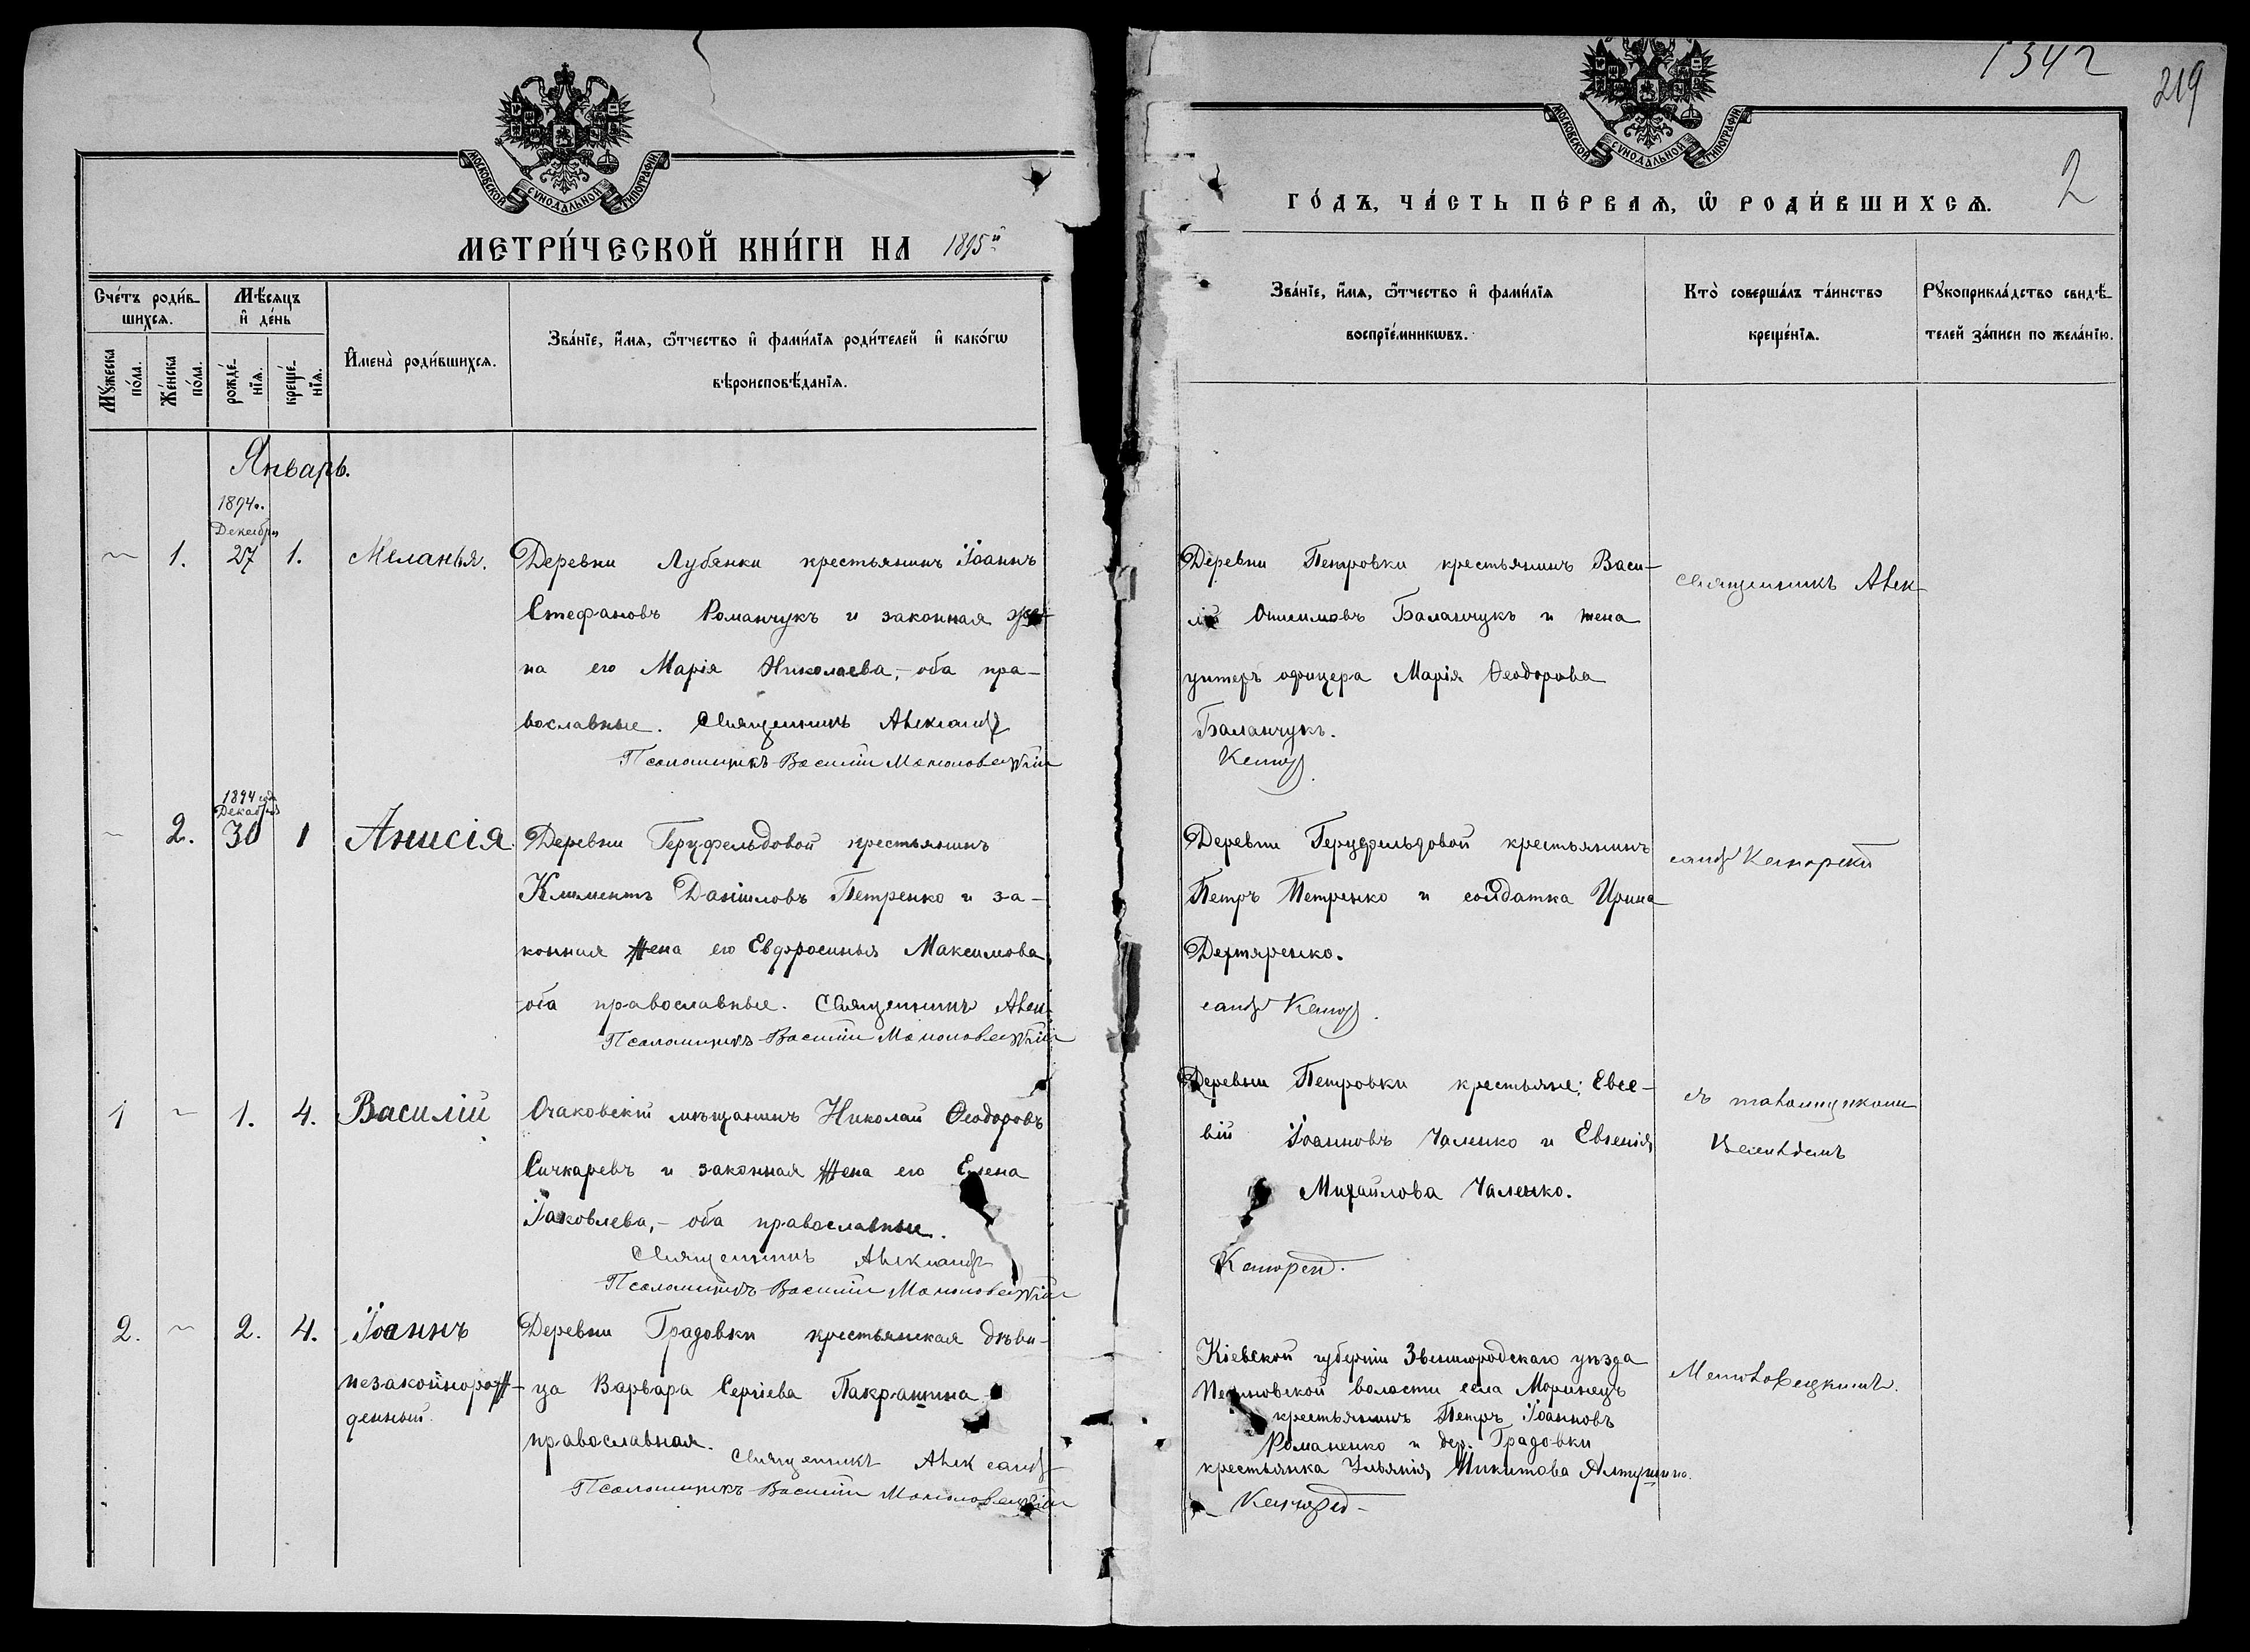 1342
219
2
МОСКОВСКОЙ СУНОДАЛЬНОЙ ТИПОГРАФІИ
МЕТРИ́ЧЕСКОЙ КНИ́ГИ НА 1895й
Сче́тъ роди́в-
шихсѧ.
Мѣ́сѧцъ
и҆ де́нь
Мꙋ́жеска
по́ла.
Же́нска
по́ла.
рожде́-
нїѧ.
креще́-
нїѧ.
И҆мена̀ роди́вшихсѧ.
Зва́нїе, и҆́мѧ, ѻ҆́тчество и҆ фами́лїѧ роди́телей и҆ како́гѡ
вѣроисповѣ́данїѧ.
Январь.
1894г.
Декабря
~ 1. 27 1. Меланья.
Деревни Лубянки крестьянинъ Іоаннъ
Стефановъ Романчукъ и законная же-
на его Марія Николаева,- оба пра-
вославные. Священникъ Александр
Псаломщикъ Василій
1894 года
Декабря
~ 2. 30 1 Анисія.
Деревни Герцфельдовой крестьянинъ
Климентъ Даніиловъ Петренко и за-
конная жена его Евфросинья Максимова,
оба православные. Священникъ Алек-
Псаломщикъ Василій
1 ~ 1. 4. Василій
Очаковскій мѣщанинъ Николай Ѳеодоровъ
Сичкаревъ и законная жена его Елена
Іаковлева,- оба православные.
Священникъ Александр
Псаломщикъ Василій
2. ~ 2. 4. Іоаннъ
незаконнорож-
денный.
Деревни Градовки крестьянская дѣви-
ца Варвара Сергіева Пакрашина
православная.
Священникъ Александр
Псаломщикъ Василій
МОСКОВСКОЙ СУНОДАЛЬНОЙ ТИПОГРАФІИ
ГО́ДЪ, ЧА́СТЬ ПЕ́РВАѦ, Ѡ҆ РОДИ́ВШИХСѦ.
Зва́нїе, и҆́мѧ, ѻ҆́тчество и҆ фами́лїѧ
воспрїе́мникѡвъ.
Кто̀ соверша́лъ та́инство
креще́нїѧ.
Рꙋкоприкла́дство свидѣ́-
телей за́писи по жела́нїю.
Деревни Петровки крестьянинъ Васи-
лій Онисимовъ Баланчукъ и жена
унтеръ офицера Марія Ѳеодорова
Баланчукъ.
Священникъ Алек-
Деревни Герцфельдовой крестьянинъ
Петръ Петренко и солдатка Ирина
Дегтяренко.
Деревни Петровки крестьяне: Евсе-
вій Іоанновъ Чаленко и Евгенія
Михайлова Чаленко.
съ псаломщикомъ
Василіемъ
Кіевской губерніи Звенигородскаго уѣзда
волости села Моринецъ
крестьянинъ Петръ Іоанновъ
Романенко и дер. Градовки
крестьянка Ульянія Никитова